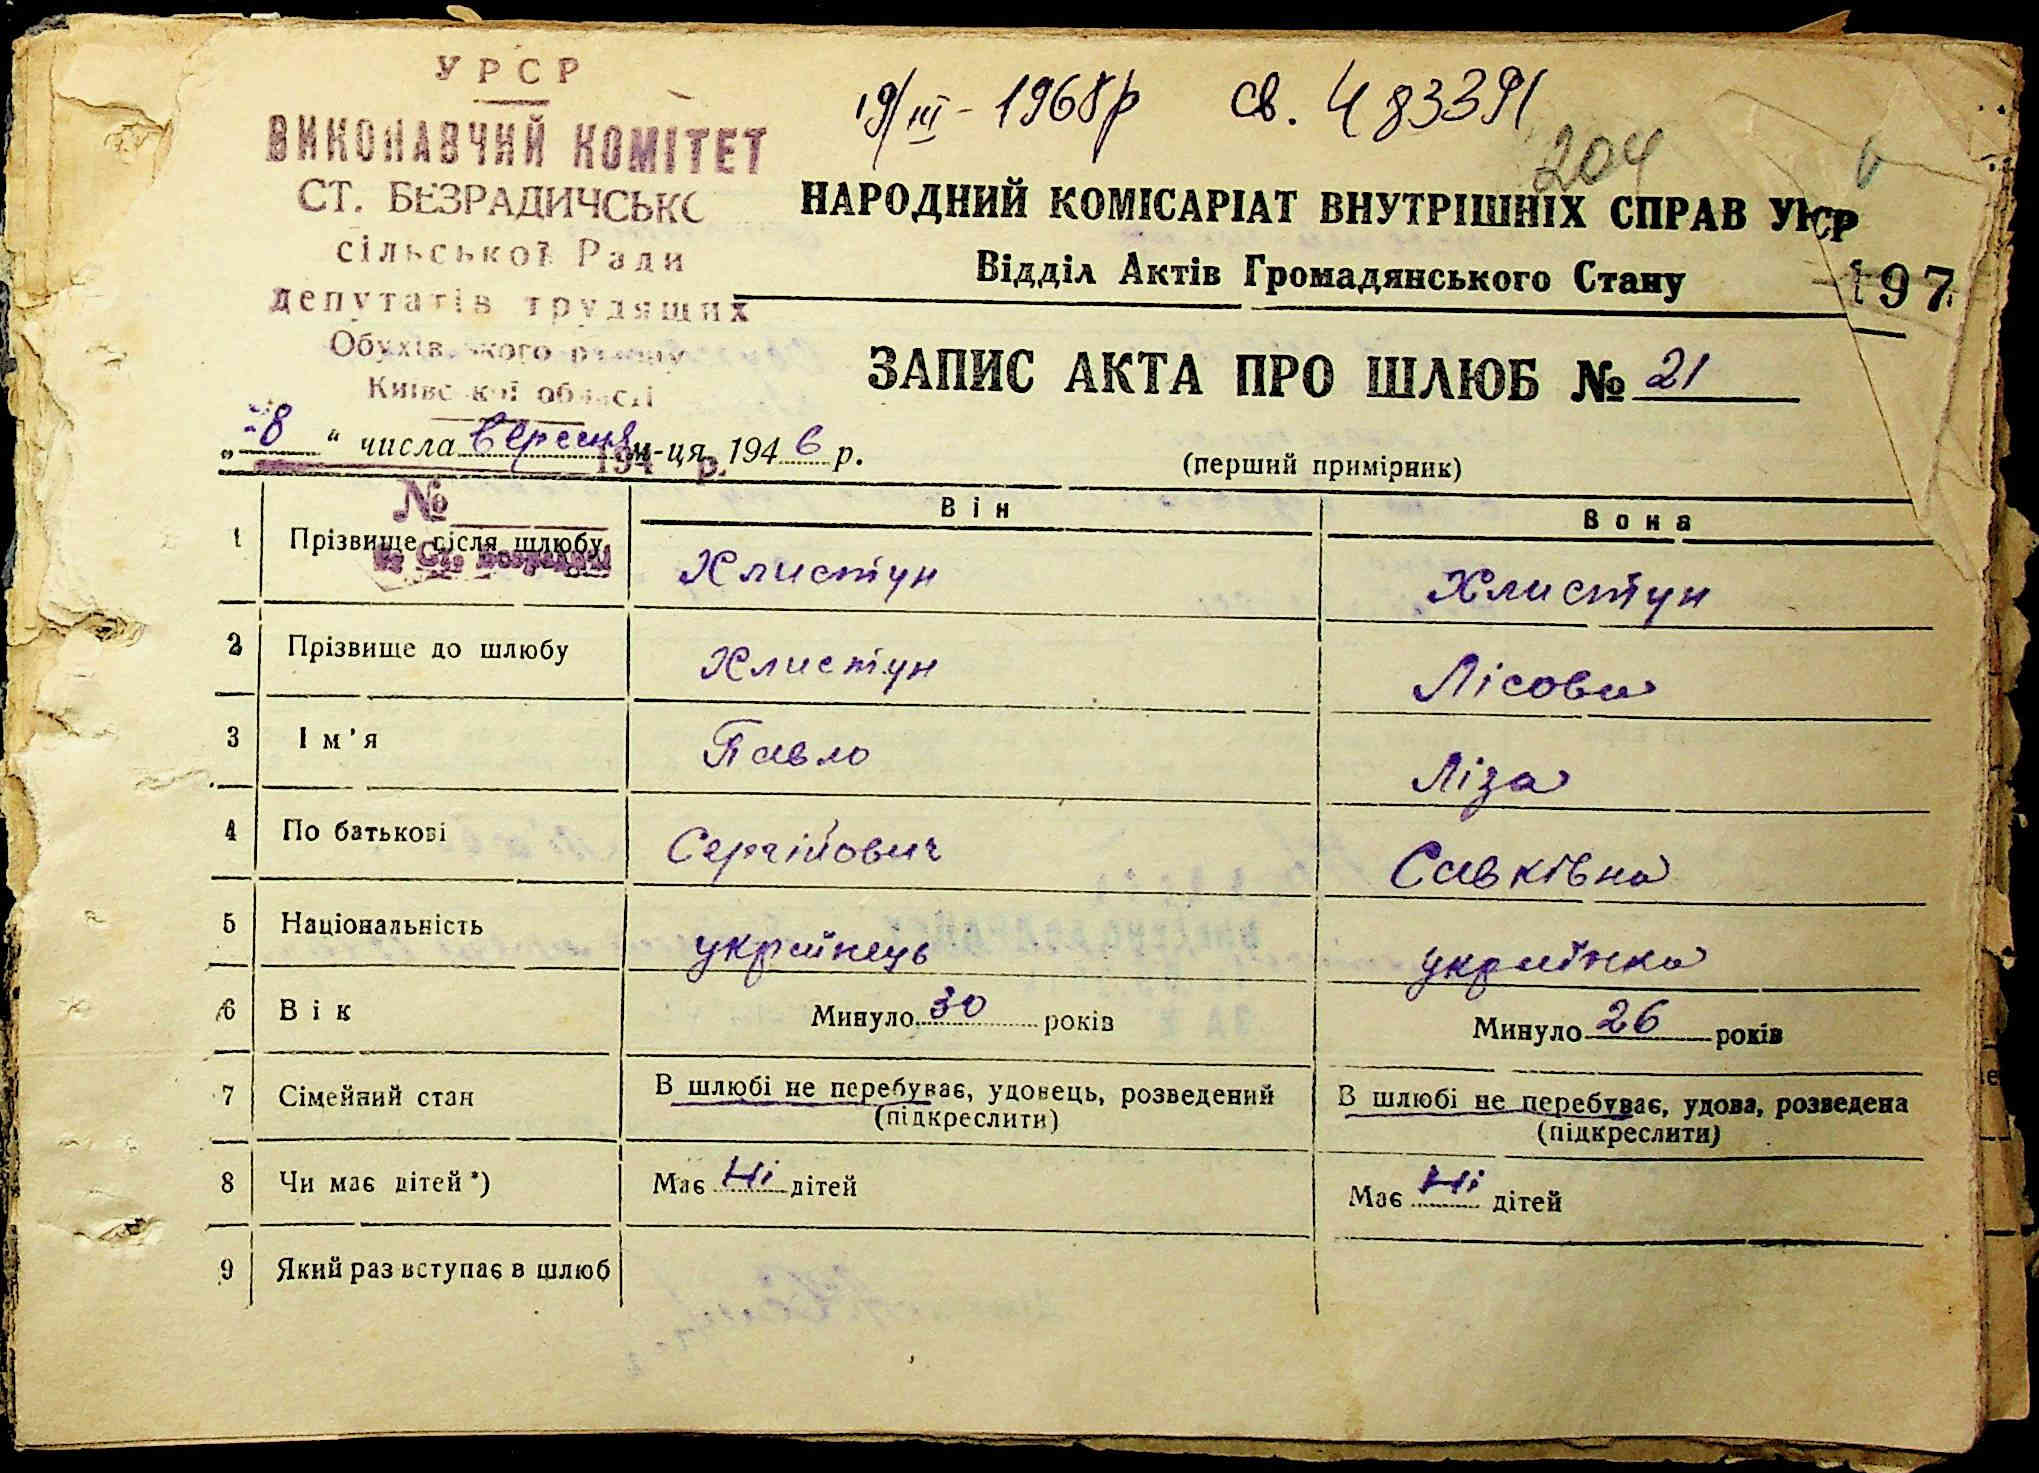 УРСР
ВИКОНАВЧИЙ КОМІТЕТ
СТ. БЕЗРАДИЧСЬКО
сільської Ради
депутатів трудящих
Обухівського району
Київської області
194 р.
№
19/III - 1968р св. 483391
204
НАРОДНИЙ КОМІСАРІАТ ВНУТРІШНІХ СПРАВ УРСР
Відділ Актів Громадянського Стану
197
ЗАПИС АКТА ПРО ШЛЮБ № 21
„8“ числа вересня м-ця 1946 р.
(перший примірник)
Він Вона
1 Прізвище після шлюбу Хлистун Хлистун
2 Прізвище до шлюбу Хлистун Лісова
3 Ім'я Павло Ліза
4 По батькові Сергійович Савківна
5 Національність українець українка
6 Вік Минуло 30 років Минуло 26 років
7 Сімейний стан В шлюбі не перебуває, удовець, розведений В шлюбі не перебуває, удова, розведена
(підкреслити) (підкреслити)
8 Чи має дітей*) Має Ні дітей Має Ні дітей
9 Який раз вступає в шлюб